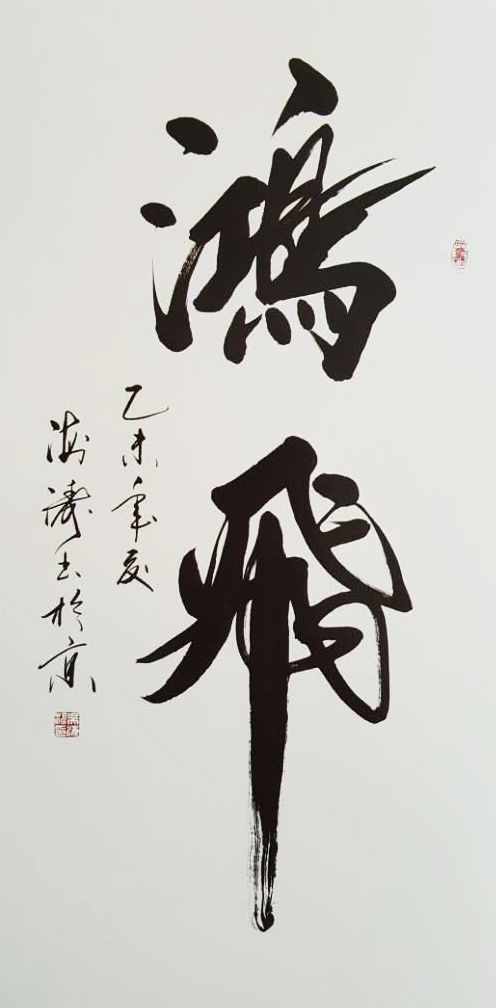 鴻飛
乙未年夏
海濤書於京